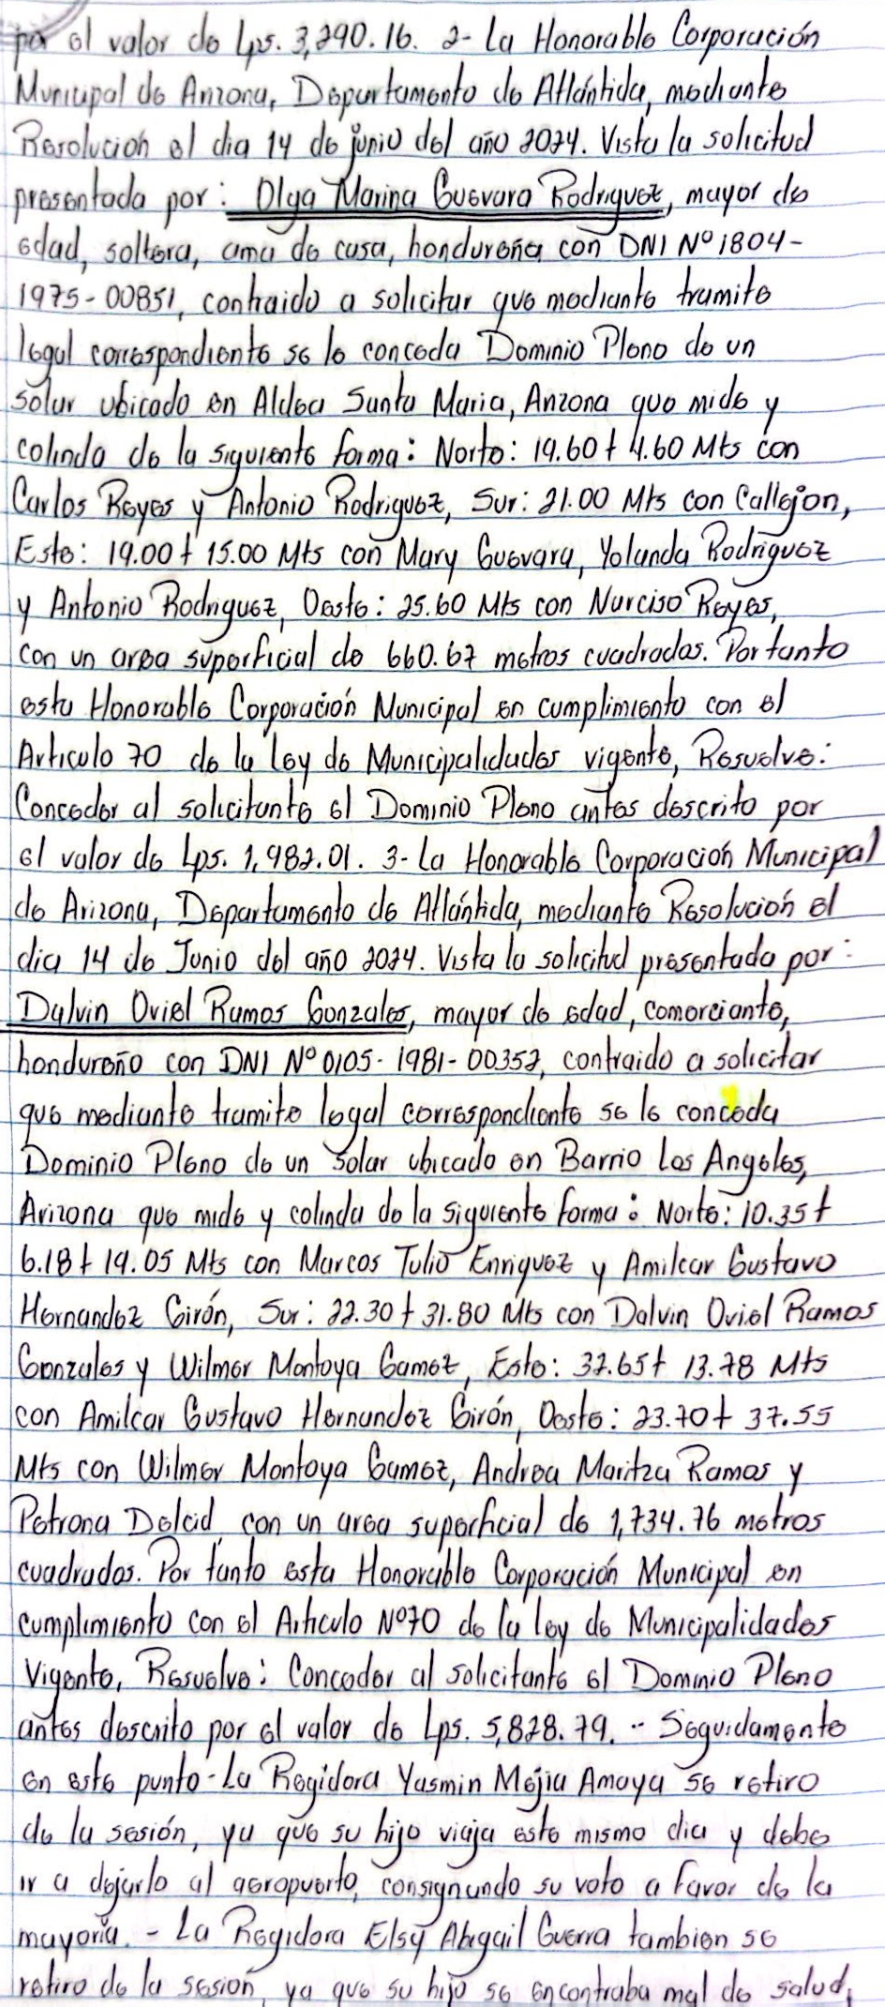 por el valor de Lps. 3,290.16. 2- La Honorable Corporación
Municipal de Arizona, Departamento de Atlántida, mediante
Resolución el dia 14 de junio del año 2024. Vista la solicitud
presentada por: Olga Marina Guevara Rodriguez, mayor de
edad, soltera, ama de casa, hondureña con DNI Nº 1804-
1975-00851, contraido a solicitar que mediante tramite
legal correspondiente se le conceda Dominio Pleno de un
solar ubicado en Aldea Santa Maria, Arizona que mide y
colinda de la siguiente forma: Norte: 19.60 + 4.60 Mts con
Carlos Reyes y Antonio Rodriguez, Sur: 21.00 Mts con Callejon,
Este: 19.00 + 15.00 Mts con Mary Guevara, Yolanda Rodriguez
y Antonio Rodriguez, Oeste: 25.60 Mts con Narciso Reyes,
con un area superficial de 660.67 metros cuadrados. Por tanto
esta Honorable Corporación Municipal en cumplimiento con el
Articulo 70 de la Ley de Municipalidades vigente, Resuelve:
Conceder al solicitante el Dominio Pleno antes descrito por
el valor de Lps. 1,982.01. 3- La Honorable Corporación Municipal
de Arizona, Departamento de Atlántida, mediante Resolución el
dia 14 de Junio del año 2024. Vista la solicitud presentada por:
Dalvin Oviel Ramos Gonzales, mayor de edad, comerciante,
hondureño con DNI Nº 0105-1981-00352, contraido a solicitar
que mediante tramite legal correspondiente se le conceda
Dominio Pleno de un solar ubicado en Barrio Los Angeles,
Arizona que mide y colinda de la siguiente forma: Norte: 10.35 +
6.18 + 19.05 Mts con Marcos Tulio Enriquez y Amilcar Gustavo
Hernandez Girón, Sur: 22.30 + 31.80 Mts con Dalvin Oviel Ramos
Gonzales y Wilmer Montoya Gamez, Este: 32.65 + 13.78 Mts
con Amilcar Gustavo Hernandez Girón, Oeste: 23.70 + 37.55
Mts con Wilmer Montoya Gamez, Andrea Maritza Ramos y
Petrona Delcid, con un area superficial de 1,734.76 metros
cuadrados. Por tanto esta Honorable Corporación Municipal en
cumplimiento con el Articulo Nº70 de la ley de Municipalidades
Vigente, Resuelve: Conceder al solicitante el Dominio Pleno
antes descrito por el valor de Lps. 5,828.79. -- Seguidamente
en este punto - La Regidora Yasmin Mejia Amaya se retiro
de la sesión, ya que su hijo viaja este mismo dia y debe
ir a dejarlo al aeropuerto, consignando su voto a favor de la
mayoria. - La Regidora Elsy Abigail Guerra tambien se
retiro de la sesion, ya que su hijo se encontraba mal de salud,